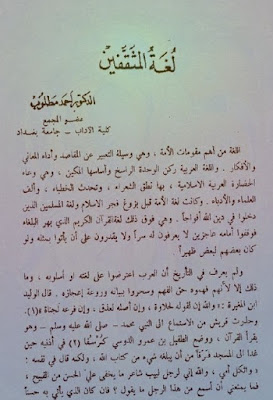 لُغَةُ المُثَقَّفِين
الدكتور أحمد مطلوب
عضو المجمع
كلية الآداب ـ جامعة بغداد
اللغة من أهم مقومات الأمة ، وهي وسيلة التعبير عن المقاصد وأداء المعاني
والأفكار . واللغة العربية ركن الوحدة الراسخ وأساسها المكين ، وهي وعاء
الحضارة العربية الاسلامية ، بها نطق الشعراء ، وتحدث الخطباء ، وألف
العلماء والأدباء . وكانت لغة الأمة قبل بزوغ فجر الاسلام ولغة المسلمين الذين
دخلوا في دين الله أفواجاً . وهي فوق ذلك لغة القرآن الكريم الذي بهر البلغاء
فوقفوا أمامه عاجزين لا يعرفون له سراً ولا يقدرون على أن يأتوا بمثله ولو
كان بعضهم لبعض ظهيراً .
ولم يعرف في التأريخ أن العرب اعترضوا على لغته أو أسلوبه ، وما
ذلك إلا لأنهم فهموه حق الفهم وسحروا ببيانه وروعة إعجازه . قال الوليد
ابن المغيرة : « والله إن لقوله لحلاوة ، وإن أصله لعذق ، وإن فرعه لجناة »(١).
وحذرت قريش من الاستماع الى النبي محمد ـ صلى الله عليه وسلم ـ وهو
يقرأ القرآن ، ووضع الطفيل بن عمرو الدوسي كُرْسُفاً (٢) في أذنيه حين
غدا الى المسجد فَرَقاً من أن يبلغه شيء من كتاب الله ، ولكنه قال في نفسه :
« واثكل أمي ، والله إني لرجل لبيب شاعر ما يخفى عليَّ الحسن من القبيح ،
فما يمنعني أن أسمع من هذا الرجل ما يقول ؟ فإن كان الذي يأتي به حسناً